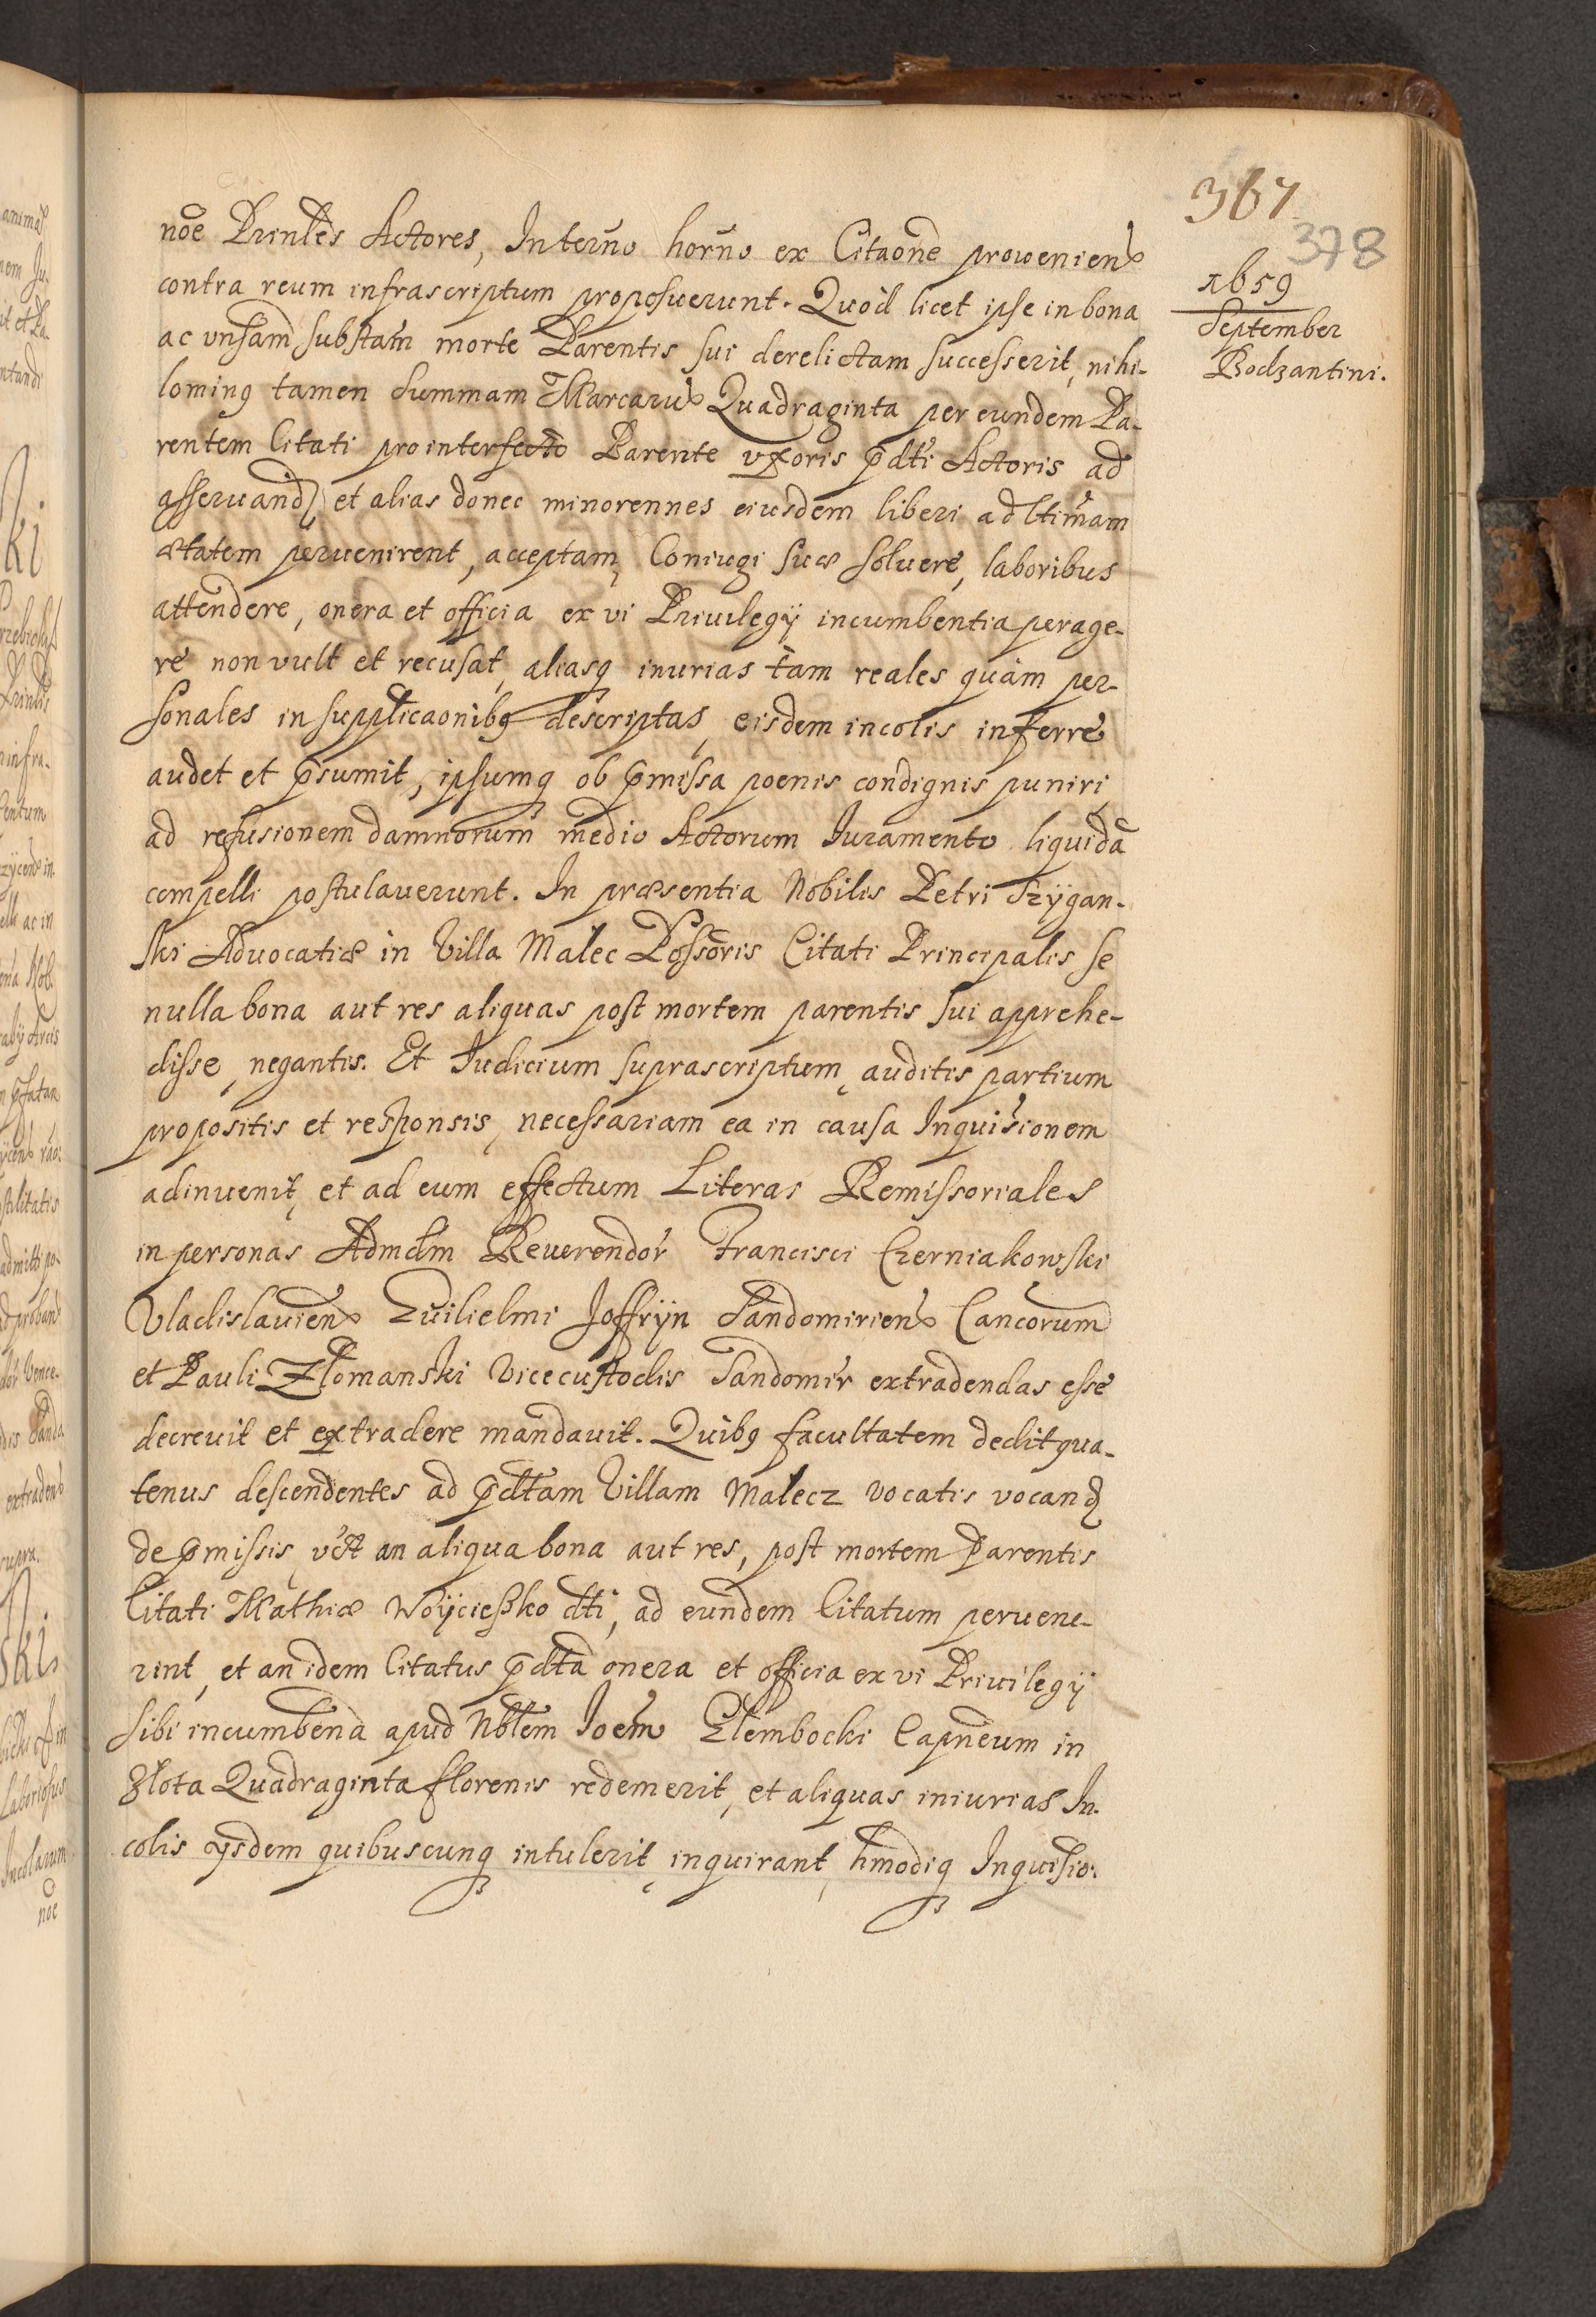 367
378
1659
September
Bodzantini.
nõe Prinles Actores, In termo horno ex Citaone prowenien
contra reum infrascriptum proposuerunt. Quòd licet ipse in bona
ac vnsam substam morte Parentis sui derelictam successerit, nihi-
lominq tamen Summam Marcaru Quadraginta per eundem Pa-
rentem Citati pro interfecto Parente vxoris pdti Actoris ad
asseruand, et alias donec minorennes eiusdem liberi ad ltimam
ætatem peruenirent, acceptam, Coniugi suæ soluere, laboribus
attendere, onera et officia ex vi Priuilegÿ incumbentia perage-
re non vult et recusat, aliasq iniurias tam reales quàm per-
sonales in supplicaonibq descriptas, eisdem incolis inferre
audet et psumit, ipsumq ob pmissa poenis condignis puniri,
ad refusionem damnorum medio Actorum Iuramento liquida
compelli postulauerunt. In præsentia Nobilis Petri Trÿgan-
ski Aduocatiæ in Villa Malec Possoris Citati Principalis se
nulla bona aut res aliquas post mortem parentis sui apprehe-
disse, negantis. Et Iudicium suprascriptum, auditis partium
propositis et responsis, necessariam ea in causa Inquisionem
adinuenit, et ad eum effectum Literas Remissoriales
in personas Admdm Reuerendor Francisci Czerniakowski
Vladislauien Guilielmi Joffrÿn Sandomirien Cancorum
et Pauli Złomanski Vicecustodis Sandomir extradendas esse
decreuit et extradere mandauit. Quibq facultatem dedit qua-
tenus descendentes ad pdtam Villam Malecz vocatis vocand
de pmissis, vct an aliqua bona aut res, post mortem Parentis
Citati Mathiæ Woÿcieszko dti, ad eundem Citatum peruene-
rint, et an idem Citatus pdta onera et officia ex vi Priuilegÿ
sibi incumbena apud Nblem Joem Głembocki Capneum in
Złota Quadraginta florenis redemerit, et aliquas iniurias In-
colis ÿsdem quibuscunq intulerit inquirant, hmodiq Inquisio: